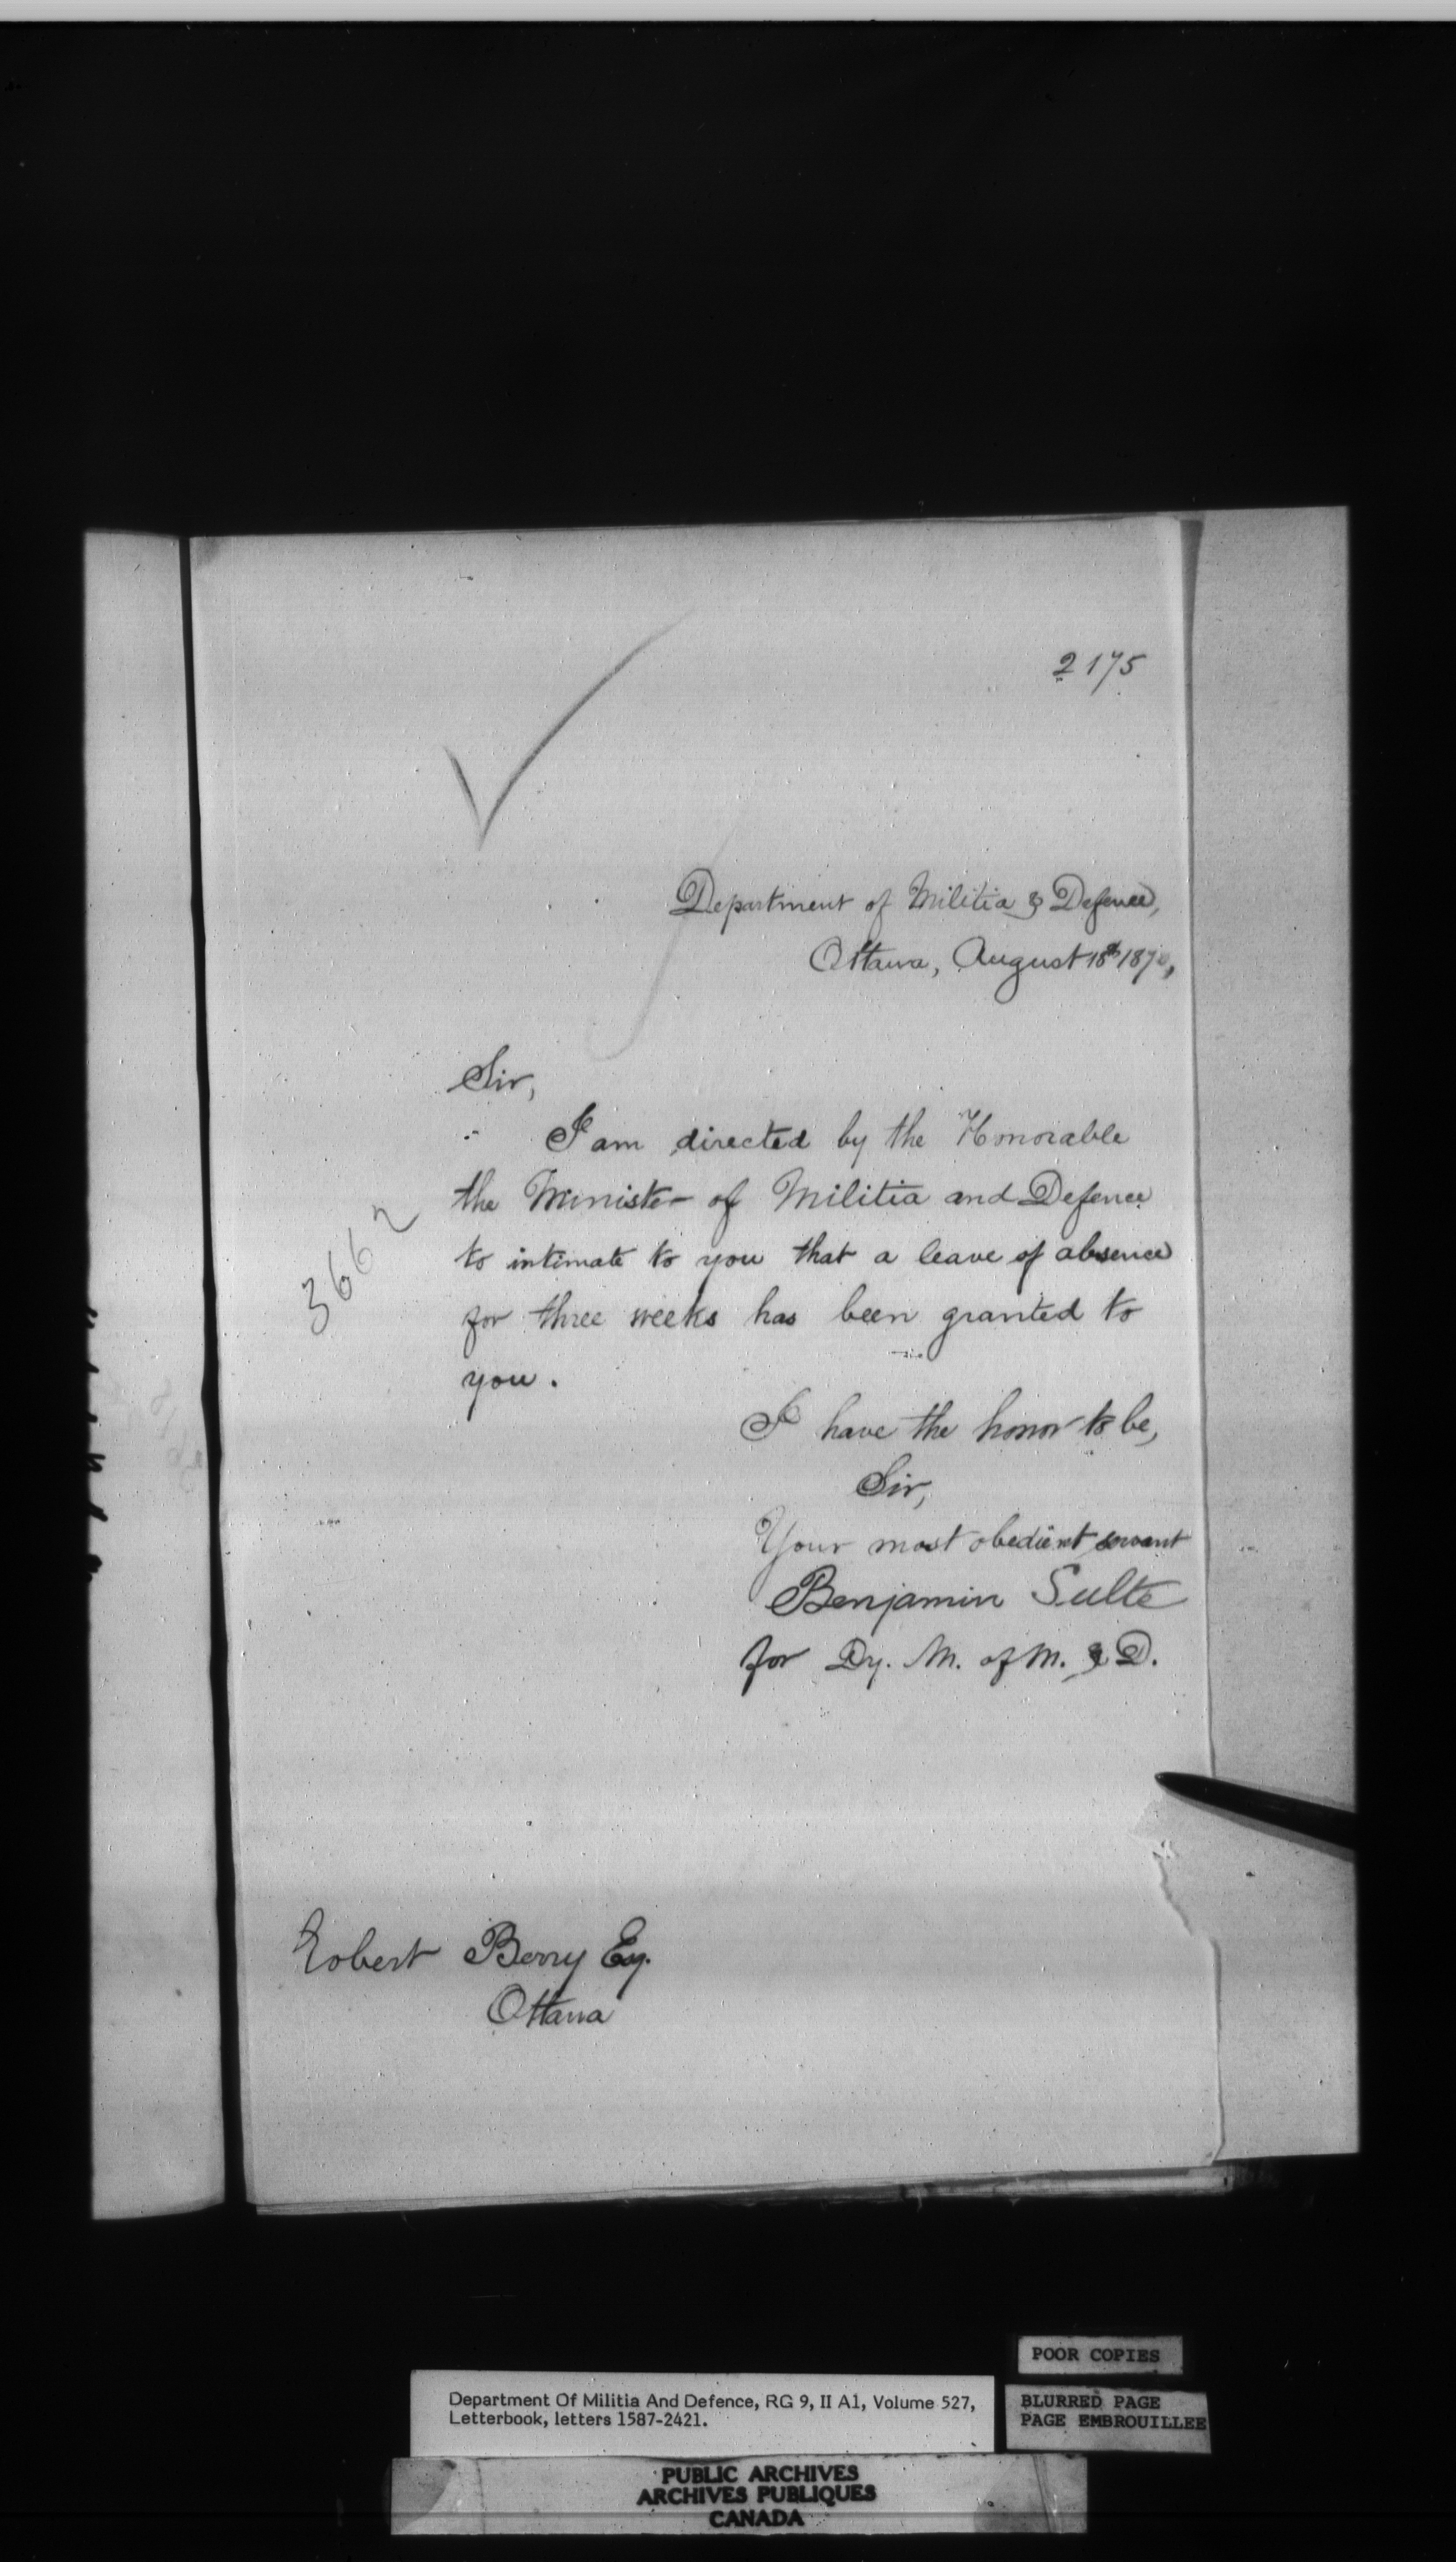 2175
Department of Militia & Defence,
Ottawa, August 18th 1870,
Sir,
I am directed by the Honorable
the Minister of Militia and Defence
to intimate to you that a leave of absence
for three weeks has been granted to
you.
3662
I have the honor to be,
Sir,
Your most obedient servant
Benjamin Sulte
for Dy. M. of M. & D.
Robert Berry Esq.
Ottawa
POOR COPIES
Department Of Militia And Defence, RG 9, II A1, Volume 527,
Letterbook, letters 1587-2421.
BLURRED PAGE
PAGE EMBROUILLEE
PUBLIC ARCHIVES
ARCHIVES PUBLIQUES
CANADA